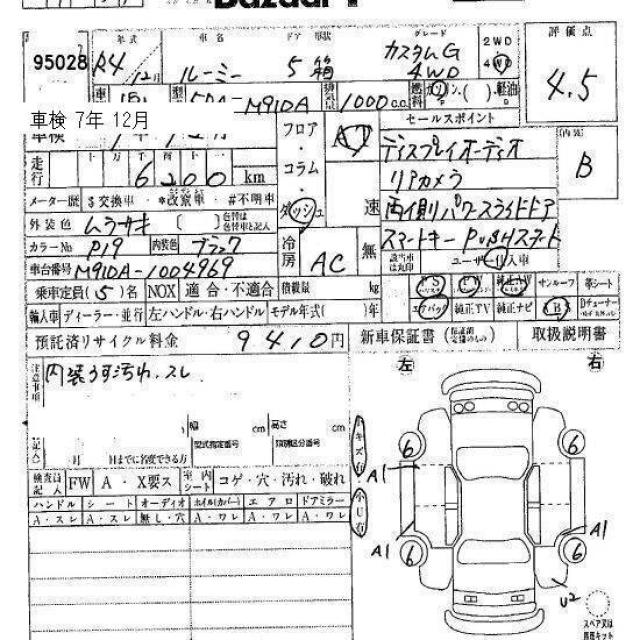 年式 車名 ドア 形状 グレード 評価点
95028 R4 12月 ルーミー 5 箱 カスタムG 4WD 2WD 4WD 4.5
型 5BA- M910A 排気量 1000 c.c. 燃料 ガソリン・( )・軽油
車検 7年 12月
セールスポイント
フロア・コラム・ダッシュ AT 速
ディスプレイオーディオ
内装 B
走行 十 万 千 百 十 6200 km
リアカメラ
メーター歴 $交換車・*改ざん車・#不明車
両側パワースライドドア
外装色 ムラサキ 〔 〕色替は色替車と記入
スマートキー PUSHスタート
カラーNo P19 内装色 ブラック 冷房 AC 無 該当車は丸印 ユーザー・仕入車
車台番号 M910A-1004969
乗車定員(5)名 NOX 適合・不適合 積載量 kg PS PW 純正AW サンルーフ 革シート
輸入車 ディーラー・並行 左ハンドル・右ハンドル モデル年式( )年 エアバッグ 純正TV 純正ナビ Dチューナー
預託済リサイクル料金 9410円 新車保証書 取扱説明書
左 右
注意事項 内装うす汚れ、スレ
幅 cm 高さ cm
型式指定番号 類別区分番号
記入 月 日までに名変できる方
キズ有 小U有
検査員記入 FW A・X要ス 室内シート コゲ・穴・汚れ・破れ
ハンドル シート オーディオ ホイル(カバー) エアロ ドアミラー
A・スレ A・スレ 無し・穴 A・ワレ A・ワレ A・ワレ
6 6
A1
A1 A1
6 6
U2
スペア又は応急キット